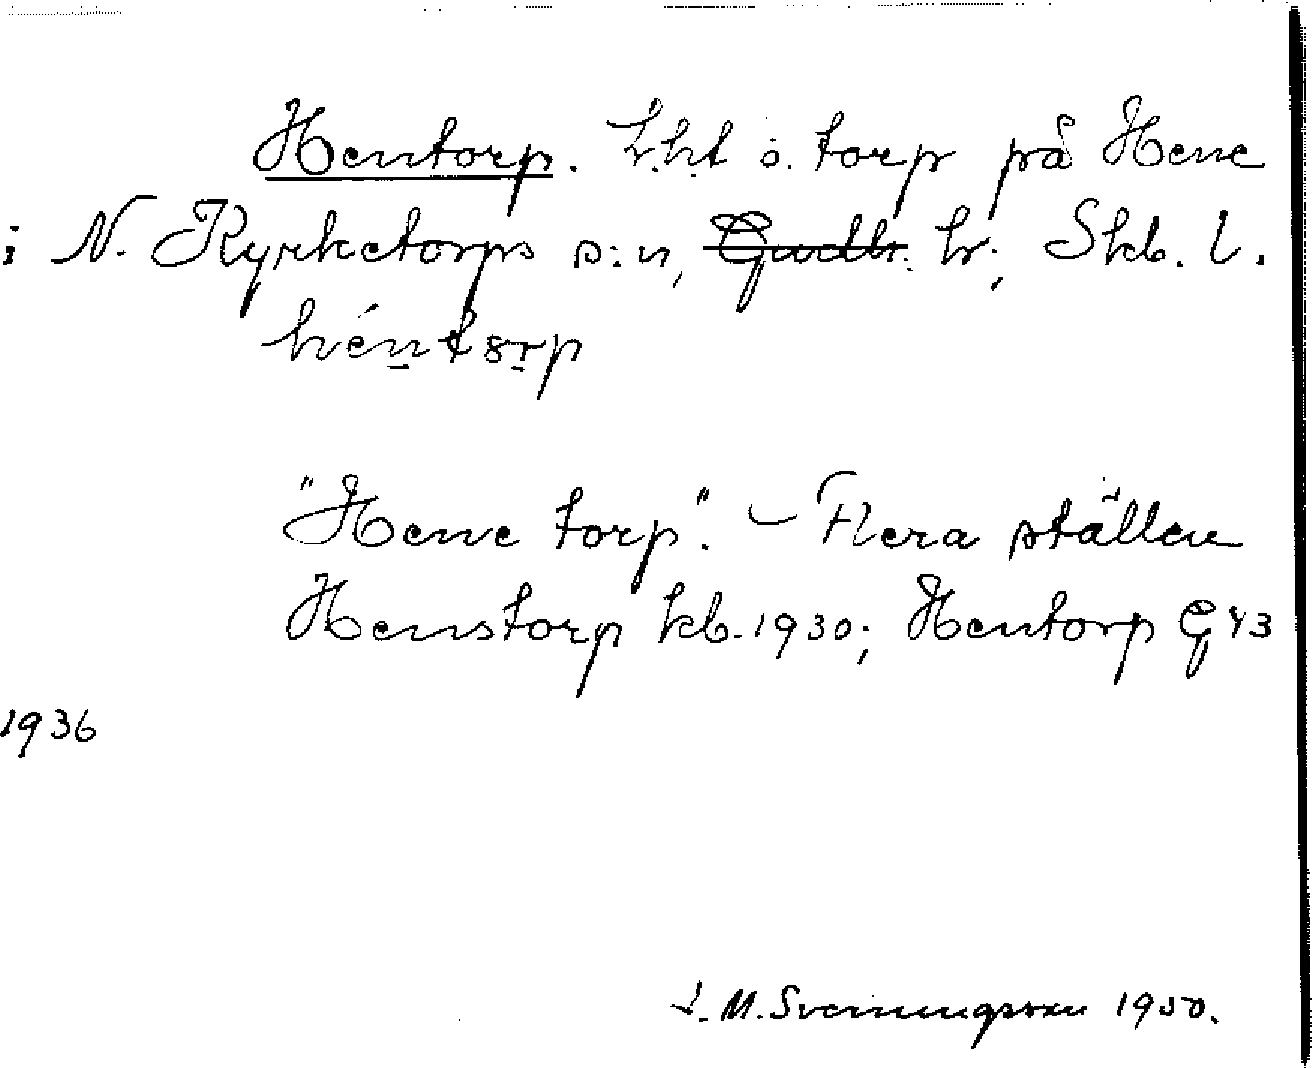 Hentorp. Lht o. torp på Hene
i N. Kyrketorps s:n, Gudh. hr; Skb. l.
héntorp
"Hene torp". – Flera ställen
Henstorp kb. 1930; Hentorp G 43
1936
M. Svenningsson 1950.